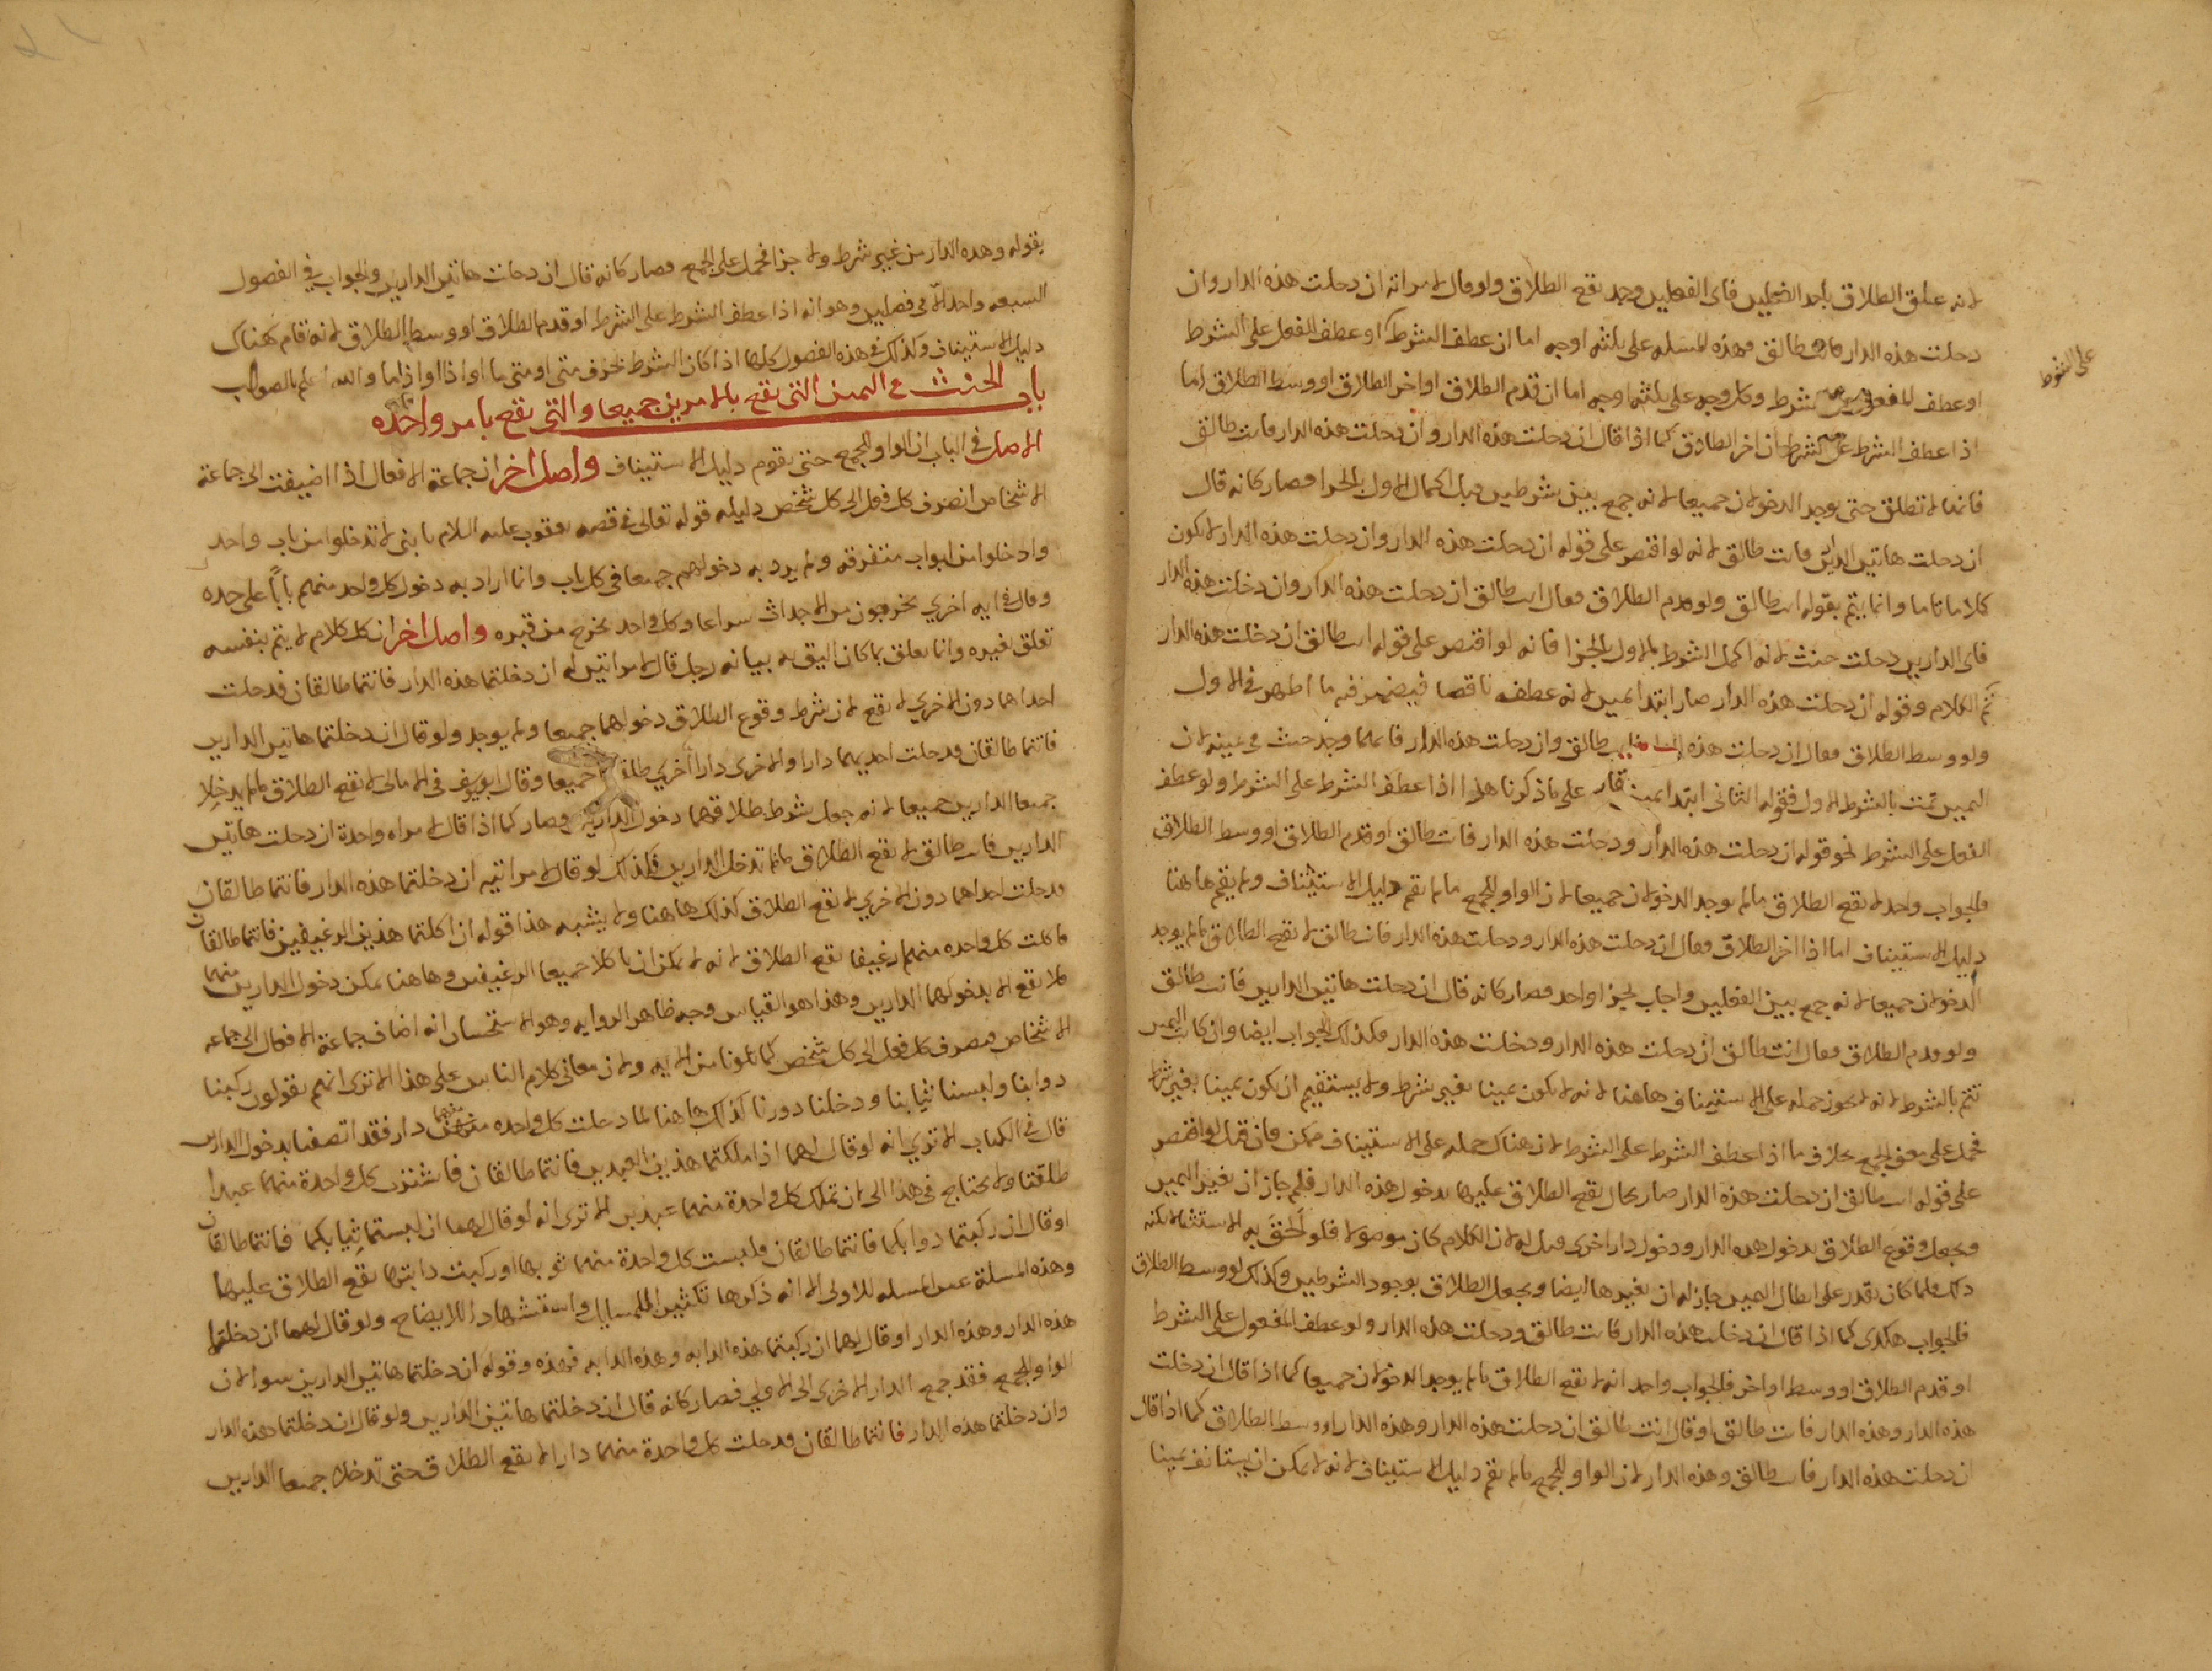 لانه علق الطلاق باحد الفعلين فاى الفعلين وجد يقع الطلاق ولو قال لامراته ان دخلت هذه الدار وان
دخلت هذه الدار فانت طالق وهذه المسله على ثلثه اوجه اما ان عطف الشرط او عطف الفعل على الشرط
على الشرط
او عطف المفعول شرط وكل وجه على ثلثه اوجه اما ان قدم الطلاق او اخر الطلاق او وسط الطلاق اما
اذا عطف الشرط على الشرط ان اخر الطلاق كما اذا قال ان دخلت هذه الدار وان دخلت هذه الدار فانت طالق
فانها لا تطلق حتى يوجد الدخولان جميعا لانه جمع بين شرطين قبل اكمال الاول بالجزا فصار كانه قال
ان دخلت هاتين الدارين فانت طالق لانه لو اقتصر على قوله ان دخلت هذه الدار وان دخلت هذه الدار لا يكون
كلاما تاما وانما يتم بقوله انت طالق ولو قدم الطلاق فقال انت طالق ان دخلت هذه الدار وان دخلت هذه الدار
فاى الدارين دخلت حنث لانه اكمل الشرط الاول بالجزا فانه لو اقتصر على قوله انت طالق ان دخلت هذه الدار
تم الكلام وقوله ان دخلت هذه الدار صار ابتدا يمين لانه عطف ناقصا فيضمر فيه ما اظهر في الاول
ولو وسط الطلاق فقال ان دخلت هذه طالق وان دخلت هذه الدار فايهما وجد حنث في يمينه لان
اليمين تمت بالشرط الاول فقوله الثاني ابتدا يمين على ما ذكرنا هذا اذا عطف الشرط على الشرط ولو عطف
الفعل على الشرط نحو قوله ان دخلت هذه الدار ودخلت هذه الدار فانت طالق او قدم الطلاق او وسط الطلاق
فالجواب واحد لا يقع الطلاق ما لم يوجد الدخولان جميعا لان الواو للجمع ما لم يقم دليل الاستيناف ولم يقم هاهنا
دليل الاستيناف اما اذا اخر الطلاق فقال ان دخلت هذه الدار ودخلت هذه الدار فانت طالق لا يقع الطلاق ما لم يوجد
الدخولان جميعا لانه جمع بين الفعلين واجاب بجزا واحد فصار كانه قال ان دخلت هاتين الدارين فانت طالق
ولو قدم الطلاق فقال انت طالق ان دخلت هذه الدار ودخلت هذه الدار فكذلك الجواب ايضا وان كانت اليمين
تتم بالشرط لانه لا يجوز حمله على الاستيناف هاهنا لانه لا يكون يمينا بغير شرط ولا يستقيم ان يكون يمينا بغير شرط
فحمل على معنى الجمع بخلاف ما اذا عطف الشرط على الشرط لان هناك حمله على الاستيناف ممكن فان قيل لو اقتصر
على قوله انت طالق ان دخلت هذه الدار صار بحال يقع الطلاق عليها بدخول هذه الدار فلم جاز ان يغير اليمين
ويجعل وقوع الطلاق بدخول هذه الدار ودخول دار اخرى قيل له لان الكلام كان موصولا فلو لحق به الاستثنا
ذلك فلما كان يقدر على ابطال اليمين جاز له ان يغيرها ايضا ويجعل الطلاق بوجود الشرطين وكذلك لو وسط الطلاق
فالجواب هكذى كما اذا قال ان دخلت هذه الدار فانت طالق ودخلت هذه الدار ولو عطف المفعول على الشرط
او قدم الطلاق او وسط او اخر فالجواب واحد انه لا يقع الطلاق ما لم يوجد الدخولان جميعا كما اذا قال ان دخلت
هذه الدار وهذه الدار فانت طالق او قال انت طالق ان دخلت هذه الدار وهذه الدار او وسط الطلاق كما اذا قال
ان دخلت هذه الدار فانت طالق وهذه الدار لان الواو للجمع ما لم يقم دليل الاستيناف لانه لا يمكن ان يستانف يمينا
بقوله وهذه الدار من غير شرط ولا جزا فحمل على الجمع فصار كانه قال ان دخلت هاتين الدارين والجواب في الفصول
السبعه واحد الا في فصلين وهو انه اذا عطف الشرط على الشرط او قدم الطلاق او وسط الطلاق لانه قام هناك
دليل الاستيناف وكذلك في هذه الفصول كلها اذا كان الشرط بحرف متى او متى ما او اذا او اذا ما والله اعلم بالصواب
باب الحنث في اليمين التي تقع بالامرين جميعا والتي تقع بامر واحده
الاصل في الباب ان الواو للجمع حتى يقوم دليل الاستيناف واصل اخر ان جماعة الافعال اذا اضيفت الى جماعة
الاشخاص انصرف كل فعل الى كل شخص دليله قوله تعالى في قصه يعقوب عليه السلام يا بني لا تدخلوا من باب واحد
وادخلوا من ابواب متفرقه ولم يرد به دخولهم جميعا في كل باب وانما اراد به دخول كل واحد منهم بابا على حده
وقال في ايه اخري يخرجون من الاجداث سراعا وكل واحد يخرج من قبره واصل اخر ان كل كلام لا يتم بنفسه
تعلق بغيره وانما يعلق بما كان اليق به بيانه رجل قال لامراتين له ان دخلتما هذه الدار فانتما طالقان فدخلت
احداهما دون الاخري لا يقع لان شرط وقوع الطلاق دخولهما جميعا ولم يوجد ولو قال ان دخلتما هاتين الدارين
فانتما طالقان فدخلت احديهما دارا والاخرى دارا اخري طلقتا جميعا وقال ابو يوسف في الامالى لا يقع الطلاق ما لم يدخلا
جميعا الدارين جميعا لانه جعل شرط طلاقهما دخول الدارين فصار كما اذا قال لامراه واحدة ان دخلت هاتين
الدارين فانت طالق لا يقع الطلاق ما لم تدخل الدارين وكذلك لو قال لامراتيه ان دخلتما هذه الدار فانتما طالقان
فدخلت احداهما دون الاخري لا يقع الطلاق كذلك هاهنا ولا يشبه هذا قوله ان اكلتما هذين الرغيفين فانتما طالقان
فاكلت كل واحده منهما رغيفا يقع الطلاق لانه لا يمكن ان ياكلا جميعا الرغيفين وهاهنا يمكن دخول الدارين منهما
فلا يقع الا بدخولهما الدارين وهذا هو القياس وجه ظاهر الروايه وهو الاستحسان انه اضاف جماعة الافعال الى جماعه
الاشخاص فيصرف كل فعل الى كل شخص كما تلونا من الايه ولان معاني كلام الناس على هذا الا ترى انهم يقولون ركبنا
دوابنا ولبسنا ثيابنا ودخلنا دورنا كذلك هاهنا لما دخلت كل واحده منهما دار فقد اتصفنا بدخول الدارين
قال في الكتاب الا تري انه لو قال لهما اذا ملكتما هذين العبدين فانتما طالقان فاشترت كل واحدة منهما عبدا
طلقتا ولا يحتاج في هذا الى ان تملك كل واحدة منهما عبدين الا ترى انه لو قال لهما ان لبستما ثيابكما فانتما طالقان
او قال ان ركبتما دوابكما فانتما طالقان فلبست كل واحدة منهما ثوبها او ركبت دابتها يقع الطلاق عليهما
وهذه المسلة عين المسله الاولى الا انه ذكرها تكثيرا للمسايل واستشهادا للايضاح ولو قال لهما ان دخلتما
هذه الدار وهذه الدار او قال لهما ان ركبتما هذه الدابه وهذه الدابه فهذه وقوله ان دخلتما هاتين الدارين سوا لان
الواو للجمع فقد جمع الدار الاخرى الى الاولي فصار كانه قال ان دخلتما هاتين الدارين ولو قال ان دخلتما هذه الدار
وان دخلتما هذه الدار فانتما طالقان فدخلت كل واحدة منهما دارا لا يقع الطلاق حتى تدخلا جميعا الدارين